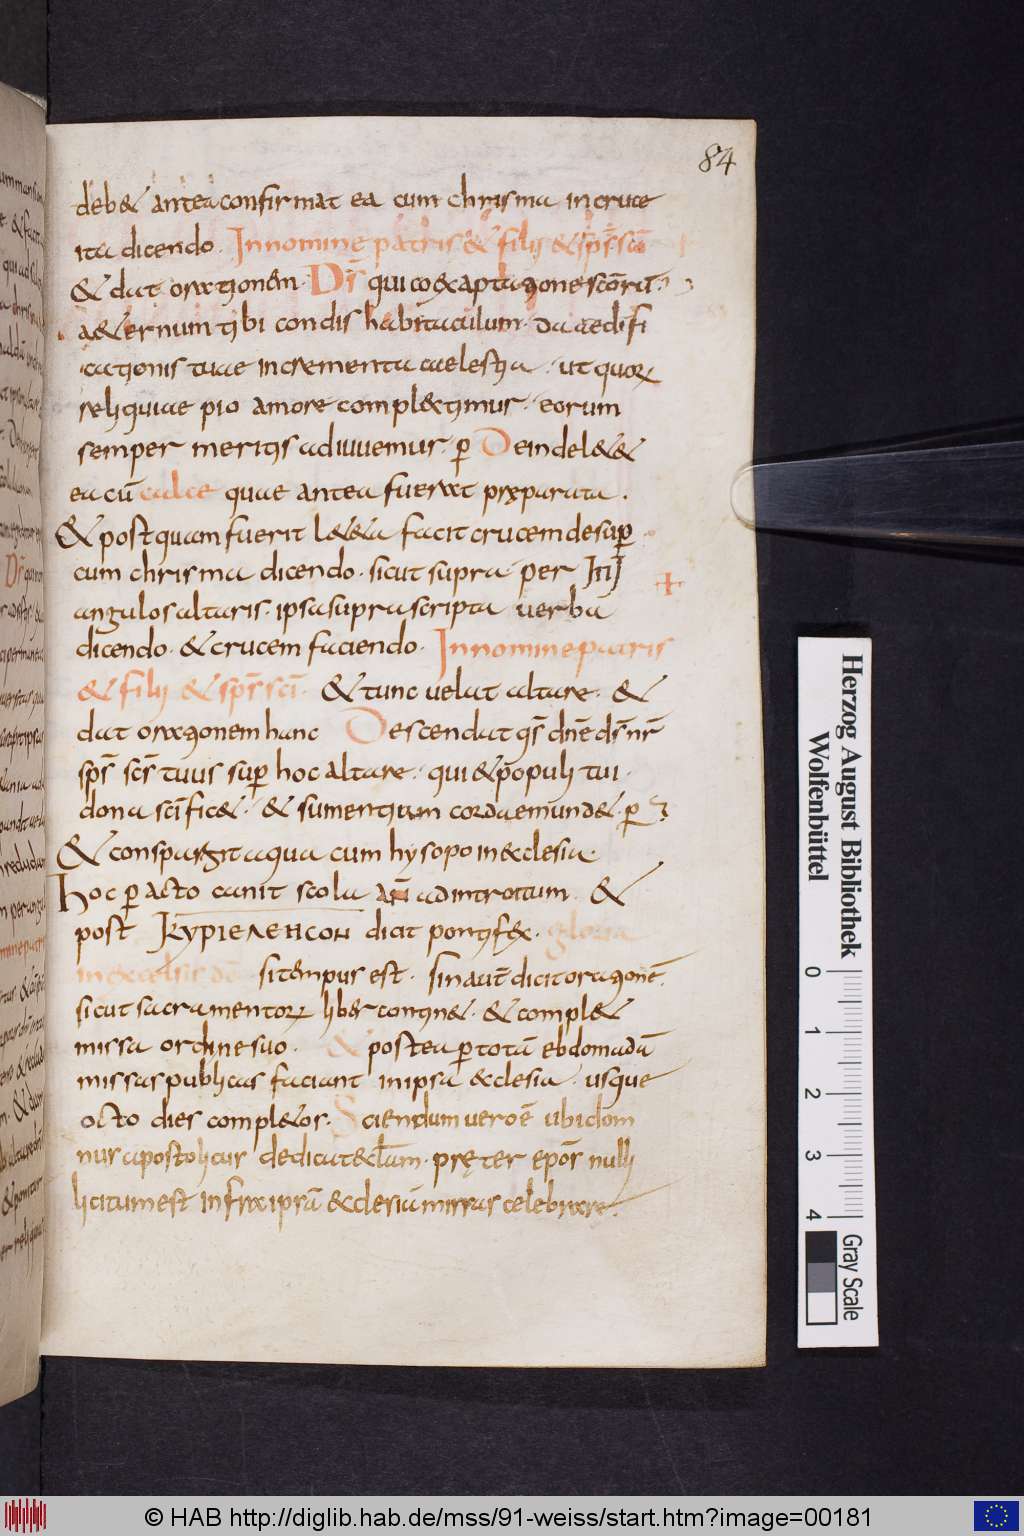 84
deb& antea confirmat ea cum chrisma in cruce
ita dicendo. In nomine patris & filii & sp̄s scī
& dat orationem. Ds̄ qui co&aptatione scōrū.
a&ernum tibi condis habitaculum. da aedifi
cationis tuae incrementa caelestia. ut quorꝝ
reliquiae pio amore compl&imur. eorum
semper meritis adiuuemur. ꝑ Deinde l&&
ea cū calce quae antea fuerat pręparata.
& postquam fuerit l&&a facit crucem desuꝑ
cum chrisma dicendo. sicut supra. per IIII
angulos altaris. ipsa suprascripta uerba
dicendo. & crucem faciendo. In nomine patris
& filii & sp̄s scī. & tunc uelat altare. &
dat orationem hanc Descendat qs̄ dn̄e ds̄ nr̄
sps̄ scs̄ tuus suꝑ hoc altare. qui & populi tui.
dona scīfic&. & sumentium corda emund&. ꝑ
& conspargit aqua cum hysopo in &clesia.
Hoc ꝑacto canit scola an̄ ad introitum. &
post KYPIEΛEHCON dicit pontif&. gloria
in excelsis dō si tempus est. sin aut̄ dicit orationē.
sicut sacramentorꝝ liber contin&. & compl&
missa ordine suo. & postea ꝑ totā ebdomadā
missas publicas faciant in ipsa &clesia. usque
octo dies compl&os. Sciendum uero ē ubi dom
nus apostolicus dedicat &clam. pręter epōs nulli
licitum est infra ipsā &clesiā missas celebrare.
Herzog August Bibliothek
Wolfenbüttel
0 1 2 3 4
Gray Scale
© HAB http://diglib.hab.de/mss/91-weiss/start.htm?image=00181